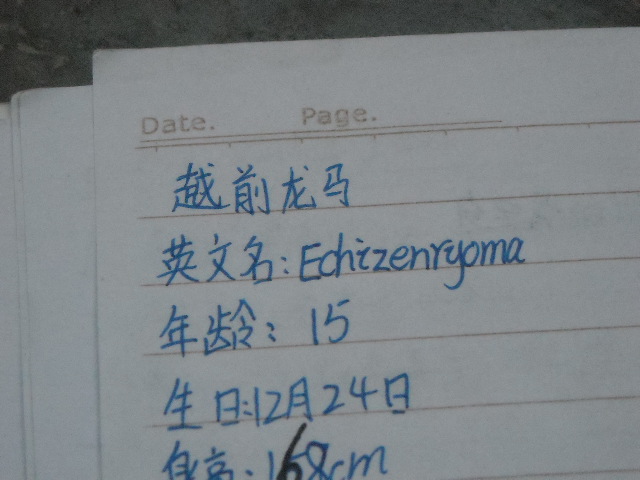 Date. Page.
越前龙马
英文名:Echizenryoma
年龄:15
生日:12月24日
身高:168cm